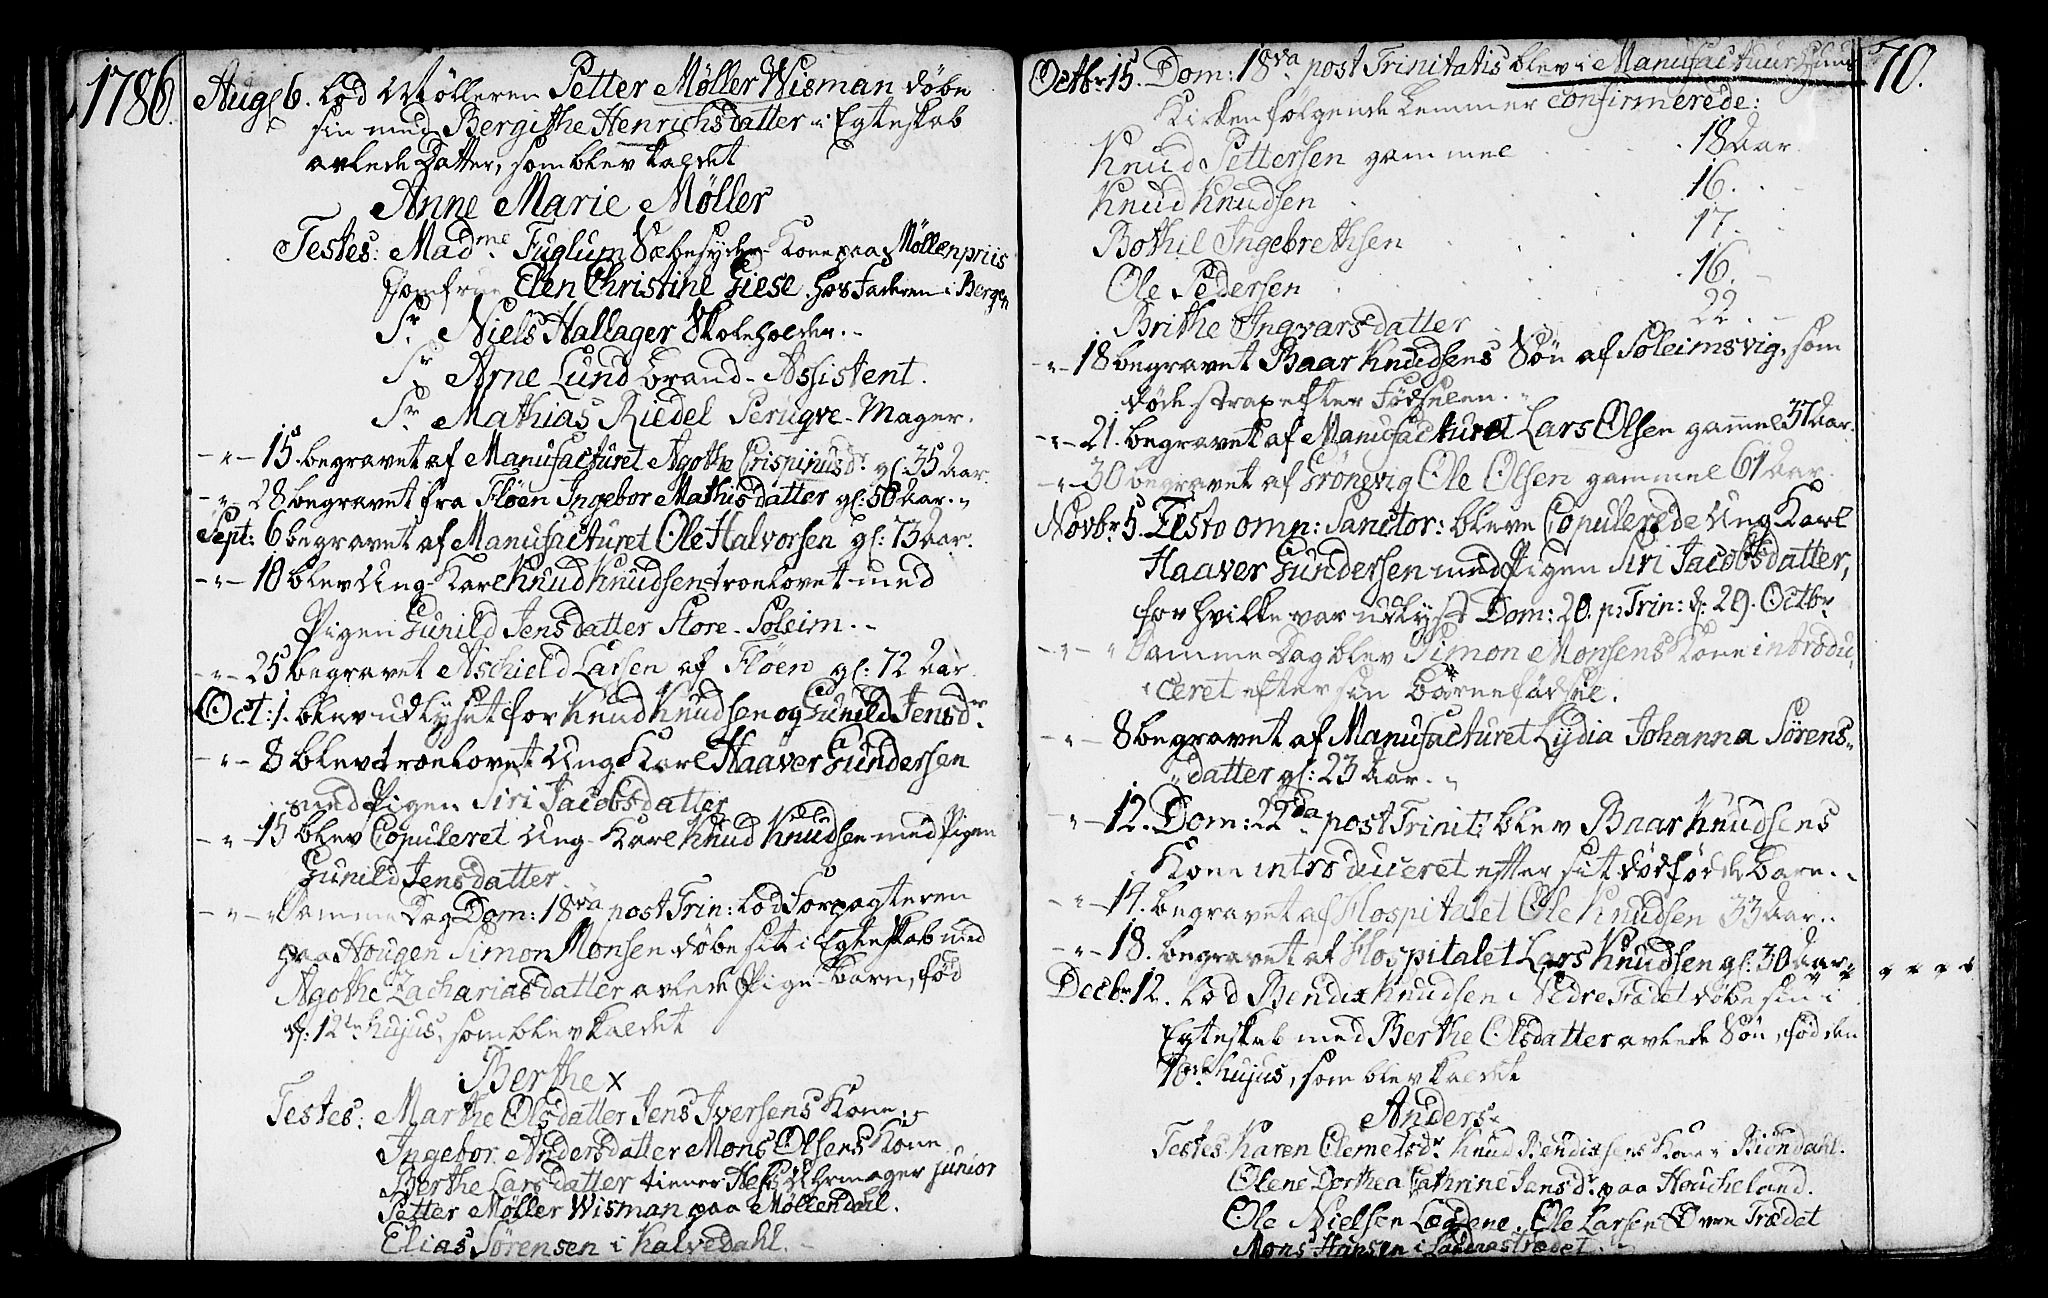 1786.
Aug: 6. lod Mølleren Petter Møller Wisman døbe
sin med Bergithe Henrichsdatter i Egteskab
avlede Datter, som blev kaldet
Anne Marie Møller
Testes: Madme Fuglum Sæbesyder-Kone paa Møllenpriis
Jomfrue Elen Christine Giese hos Faderen i Bergen
Sr. Niels Hallager Skoleholder.
Sr Arne Lund Brand-Assistent.
Sr Mathias Riedel Peruqve-Mager.
-"- 15. begravet af Manufacturet Agothe Crispinusdr gl: 35 Aar.
-"- 28 begravet fra Fløen Ingebor Mathisdatter gl: 50 Aar.
Sept: 6 begravet af Manufacturet Ole Halvorsen gl: 73 Aar.
-"- 10 blev Ung-Karl Knud Knudsen troelovet med
Pigen Gunild Jensdatter Store-Soleim.
-"- 25 begravet Aschield Larsen af Fløen gl: 72 Aar
Oct: 1. blev udlyset for Knud Knudsen og Gunild Jensdr.
-"- 8 blev troelovet Ung-Karl Haaver Gundersen
med Pigen Siri Jacobsdatter
-"- 15 blev Copuleret Ung-Karl Knud Knudsen med Pigen
Gunild Jensdatter.
-"- Samme Dag Dom: 18va post Trin: lod Forpagteren
paa Hougen Simon Monsen døbe sit i Egteskab med
Agothe Zachariasdatter avlede Pige-Barn, fød
d: 12te hujus, som blev kaldet
Berthe x
Testes: Marthe Olsdatter Jens Iversens Kone
Ingebor Andersdatter Mons Olsens Kone
Berthe Larsdatter tiener Hess Uhrmager junior
Petter Møller Wisman paa Møllendal.
Elias Sørensen i Kalvedahl.
70.
Octbr 15. Dom: 18va post Trinitatis blev i Manufactuurhuus
Kirken følgende Lemmer confirmerede:
Knud Pettersen gammel 18 Aar.
Knud Knudsen 16.
Bothil Ingebrethsen 17.
Ole Pedersen 16.
Brithe Ingvarsdatter 22.
-"- 18 begravet Baar Knudsens Søn af Soleimsvig, som
døde strax efter Fødselen.
-"- 21. begravet af Manufacturet Lars Olsen gammel 37 Aar.
-"- 30 begravet af Grønevig Ole Olsen gammel 61 Aar.
Novbr 5. Festo omn: Sanctor: bleve Copulerede Ung Karl
Haaver Gundersen med Pigen Siri Jacobsdatter,
for hvilke var udlyst Dom: 20. p: Trin: d: 29. Octbr
-"- " Samme Dag blev Simon Monsens Kone introdu-
ceret efter sin Barnefødsel.
-"- 8 begravet af Manufacturet Lydia Johanna Sørens-
datter gl: 23 Aar.
-"- 12. Dom: 22da post Trinit: blev Baar Knudsens
Kone introduceret efter sit dødfødde Barn.
-"- 17. begravet af Hospitalet Ole Knudsen 33 Aar.
-"- 18. begravet af Hospitalet Lars Knudsen gl: 30 Aar
Decbr 12. lod Bendix Knudsen Nedre Trædet døbe sin i
Egteskab med Berthe Olsdatter avlede Søn, fød den
10de hujus, som blev kaldet
Anders
Testes Karen Clemetsdr Knud Bendixsens Kone i
Olene Dorthea Cathrine Jensdr paa Houcheland.
Ole Nielsen Ole Larsen Øvre Trædet
Mons Hansen i